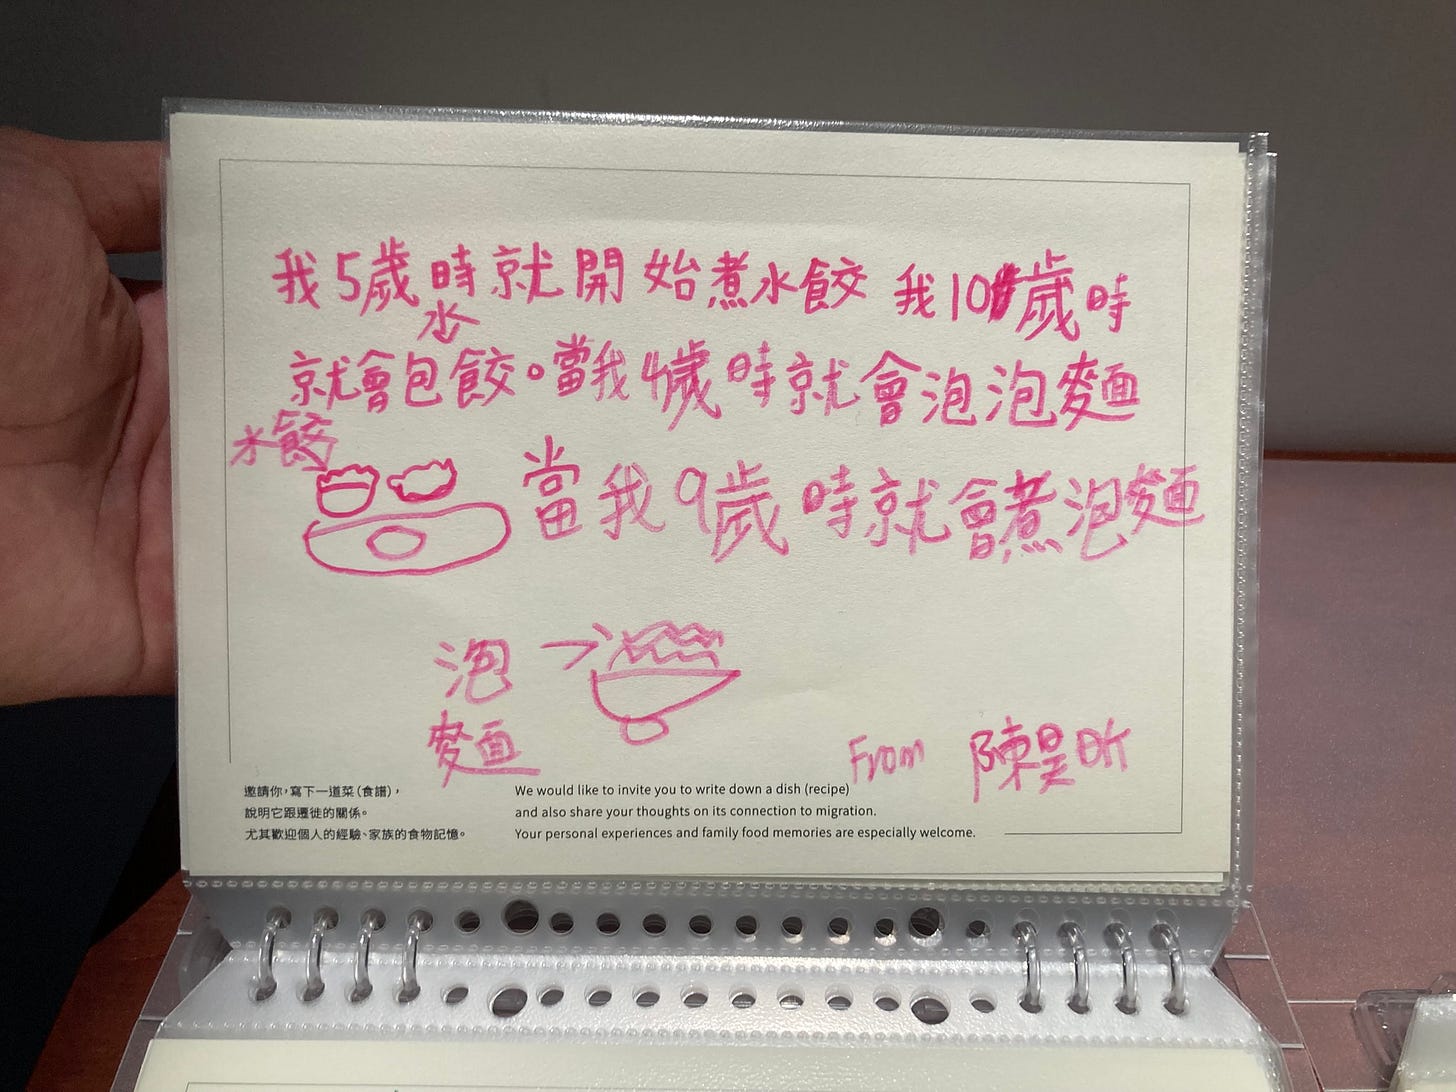 我5歲時就開始煮水餃 我10歲時
就會包水餃。當我4歲時就會泡泡麵
水餃
當我9歲時就會煮泡麵
泡
麵
From 陳昊昕
邀請你，寫下一道菜（食譜），
說明它跟遷徙的關係。
尤其歡迎個人的經驗、家族的食物記憶。
We would like to invite you to write down a dish (recipe)
and also share your thoughts on its connection to migration.
Your personal experiences and family food memories are especially welcome.